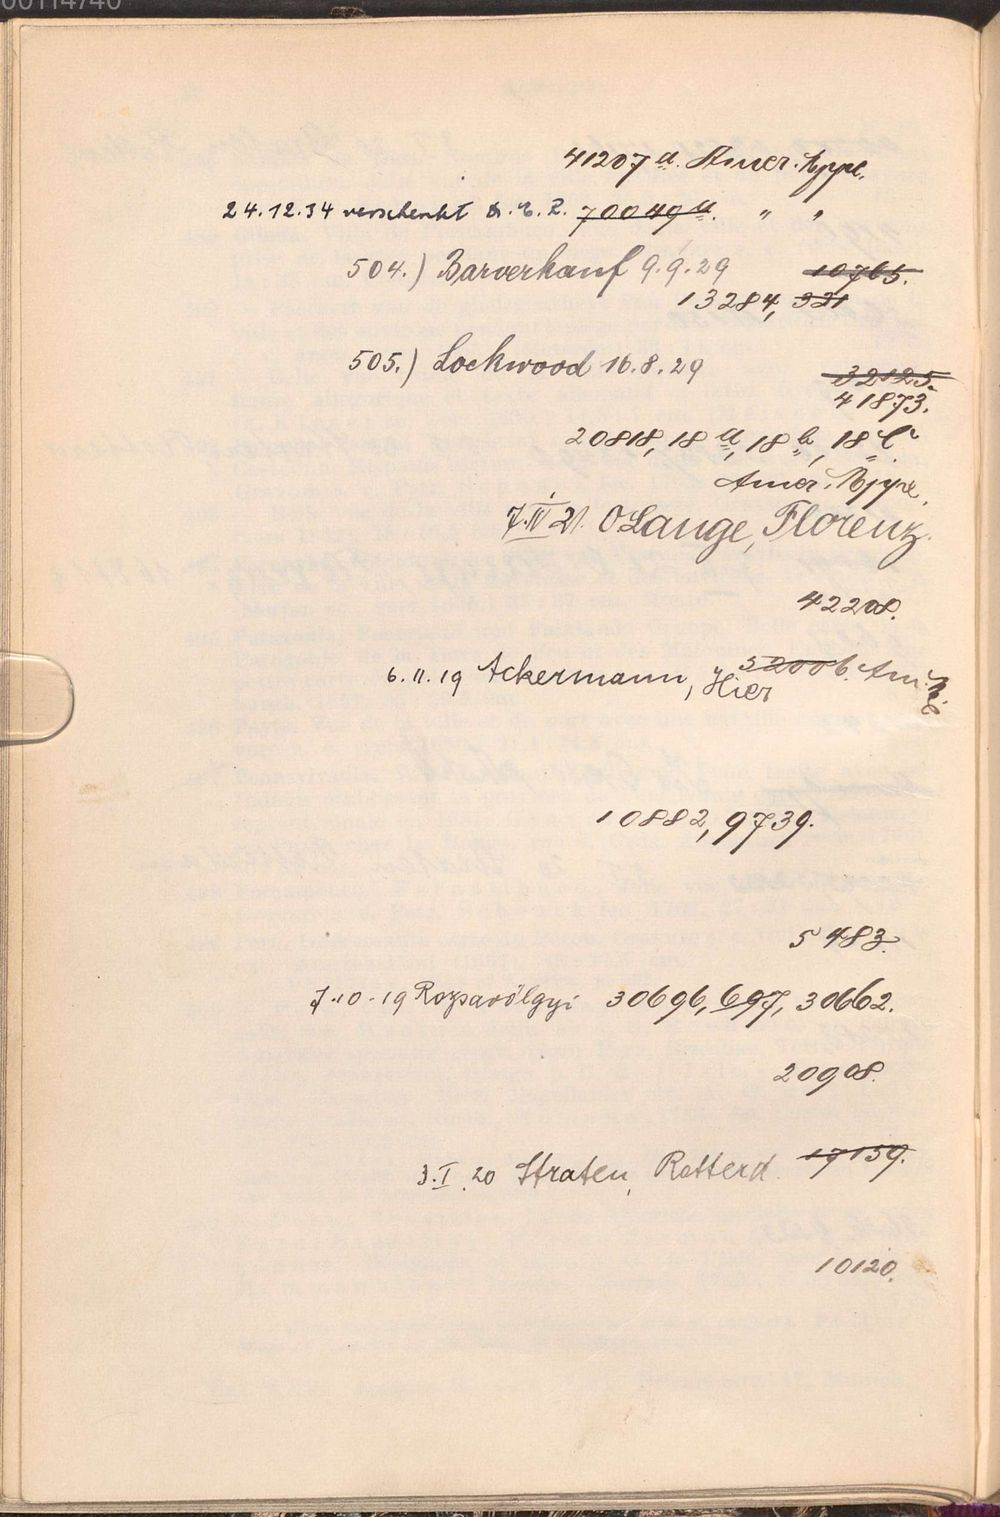 00114740
41207 a. Amer. Mppe.
24.12.34 verschenkt 70049 a. " "
504.) Barverkauf 9.9.29 10765.
13284, 321
505.) Lockwood 16.8.29 32125.
41873.
20818, 18 a, 18 b, 18 c
Amer. Mppe.
7.IV 21. O Lange, Florenz.
42208.
6.11.19 Ackermann, Hier 52006. Am.
10882, 9739.
5483.
7.10.19 Rozsavölgyi 30696, 697, 30662.
20908.
3.I.20 Straten, Rotterd. 19159.
10120.